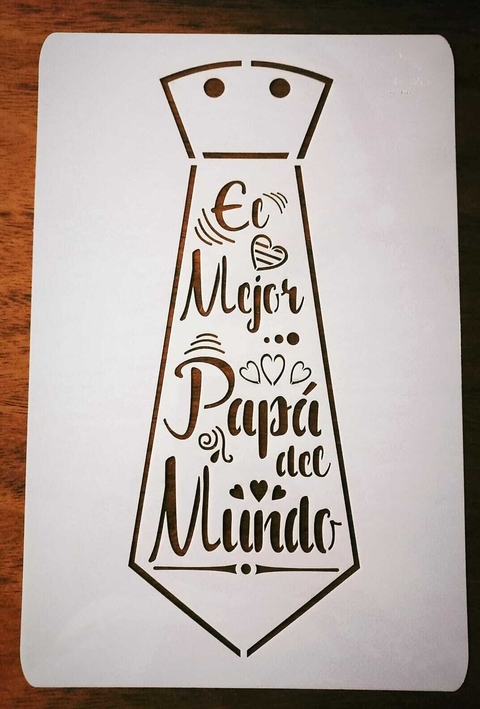 El
Mejor
Papá
del
Mundo